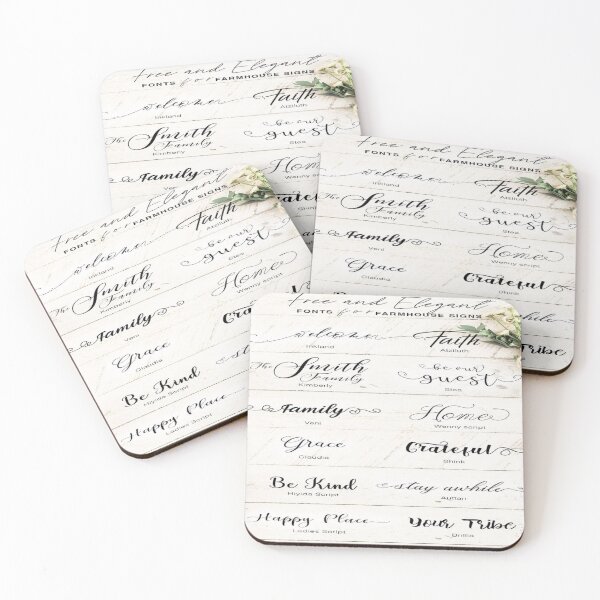 Free and Elegant
FONTS for FARMHOUSE SIGNS
welcome Faith
Ireland
The Smith Family be our guest
Kimberly
Family Home
Wenny script
Free and Elegant
FONTS for FARMHOUSE SIGNS
welcome Faith
Ireland
Smith Family be our guest
Kimberly
Family Home
Veni Wenny script
Grace Grateful
Claudia
Tribe
Free and Elegant
FONTS for FARMHOUSE SIGNS
welcome Faith
Ireland
The Smith Family be our guest
Kimberly
Family Home
Veni Wenny script
Grace
Claudia
Be Kind stay
Script
Happy Place
Ladies Script
Free and Elegant
FONTS for FARMHOUSE SIGNS
welcome Faith
Ireland
The Smith Family be our guest
Kimberly
Family Home
Veni Wenny script
Grace Grateful
Claudia
Be Kind stay awhile
Script
Happy Place Your Tribe
Ladies Script